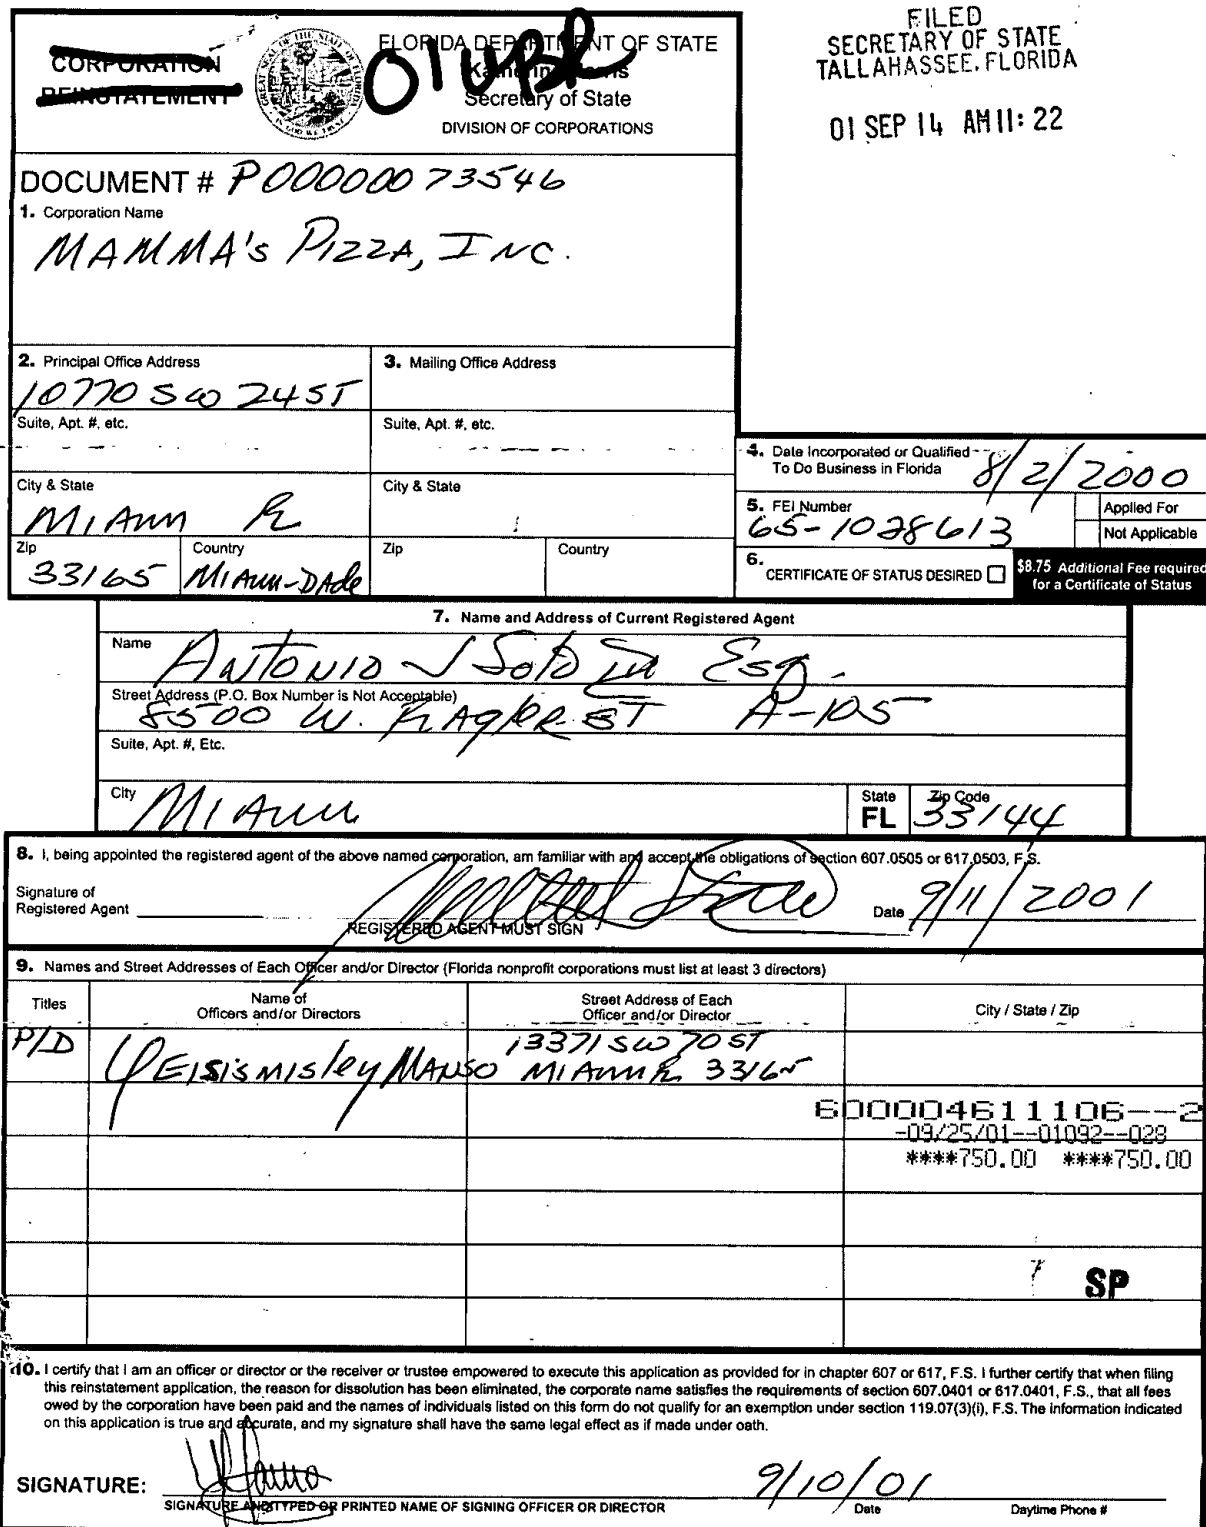 CORPORATION
REINSTATEMENT
FLORIDA DEPARTMENT OF STATE
Katherine Harris
Secretary of State
DIVISION OF CORPORATIONS
01UBR
FILED
SECRETARY OF STATE
TALLAHASSEE, FLORIDA
01 SEP 14 AM 11: 22
DOCUMENT # P00000073546
1. Corporation Name
MAMMA'S PIZZA, INC.
2. Principal Office Address
3. Mailing Office Address
10770 SW 24 ST
Suite, Apt. #, etc.
Suite, Apt. #, etc.
City & State
City & State
MIAMI FL
Zip
Country
Zip
Country
33165
MIAMI-DADE
4. Date Incorporated or Qualified
To Do Business in Florida
8/2/2000
5. FEI Number
65-1028613
Applied For
Not Applicable
6.
CERTIFICATE OF STATUS DESIRED
$8.75 Additional Fee required
for a Certificate of Status
7. Name and Address of Current Registered Agent
Name
ANTONIO J Soto Esq.
Street Address (P.O. Box Number is Not Acceptable)
8500 W. Flagler ST A-105
Suite, Apt. #, Etc.
City
MIAMI
State
FL
Zip Code
33144
8. I, being appointed the registered agent of the above named corporation, am familiar with and accept the obligations of section 607.0505 or 617.0503, F.S.
Signature of
Registered Agent
REGISTERED AGENT MUST SIGN
Date
9/11/2001
9. Names and Street Addresses of Each Officer and/or Director (Florida nonprofit corporations must list at least 3 directors)
Titles
Name of
Officers and/or Directors
Street Address of Each
Officer and/or Director
City / State / Zip
P/D
YEISISMISLEY MANSO
13371 SW 70 ST
MIAMI FL 33165
600004611106--2
-09/25/01--01092--028
****750.00 ****750.00
SP
10. I certify that I am an officer or director or the receiver or trustee empowered to execute this application as provided for in chapter 607 or 617, F.S. I further certify that when filing
this reinstatement application, the reason for dissolution has been eliminated, the corporate name satisfies the requirements of section 607.0401 or 617.0401, F.S., that all fees
owed by the corporation have been paid and the names of individuals listed on this form do not qualify for an exemption under section 119.07(3)(i), F.S. The information indicated
on this application is true and accurate, and my signature shall have the same legal effect as if made under oath.
SIGNATURE:
SIGNATURE AND TYPED OR PRINTED NAME OF SIGNING OFFICER OR DIRECTOR
9/10/01
Date
Daytime Phone #